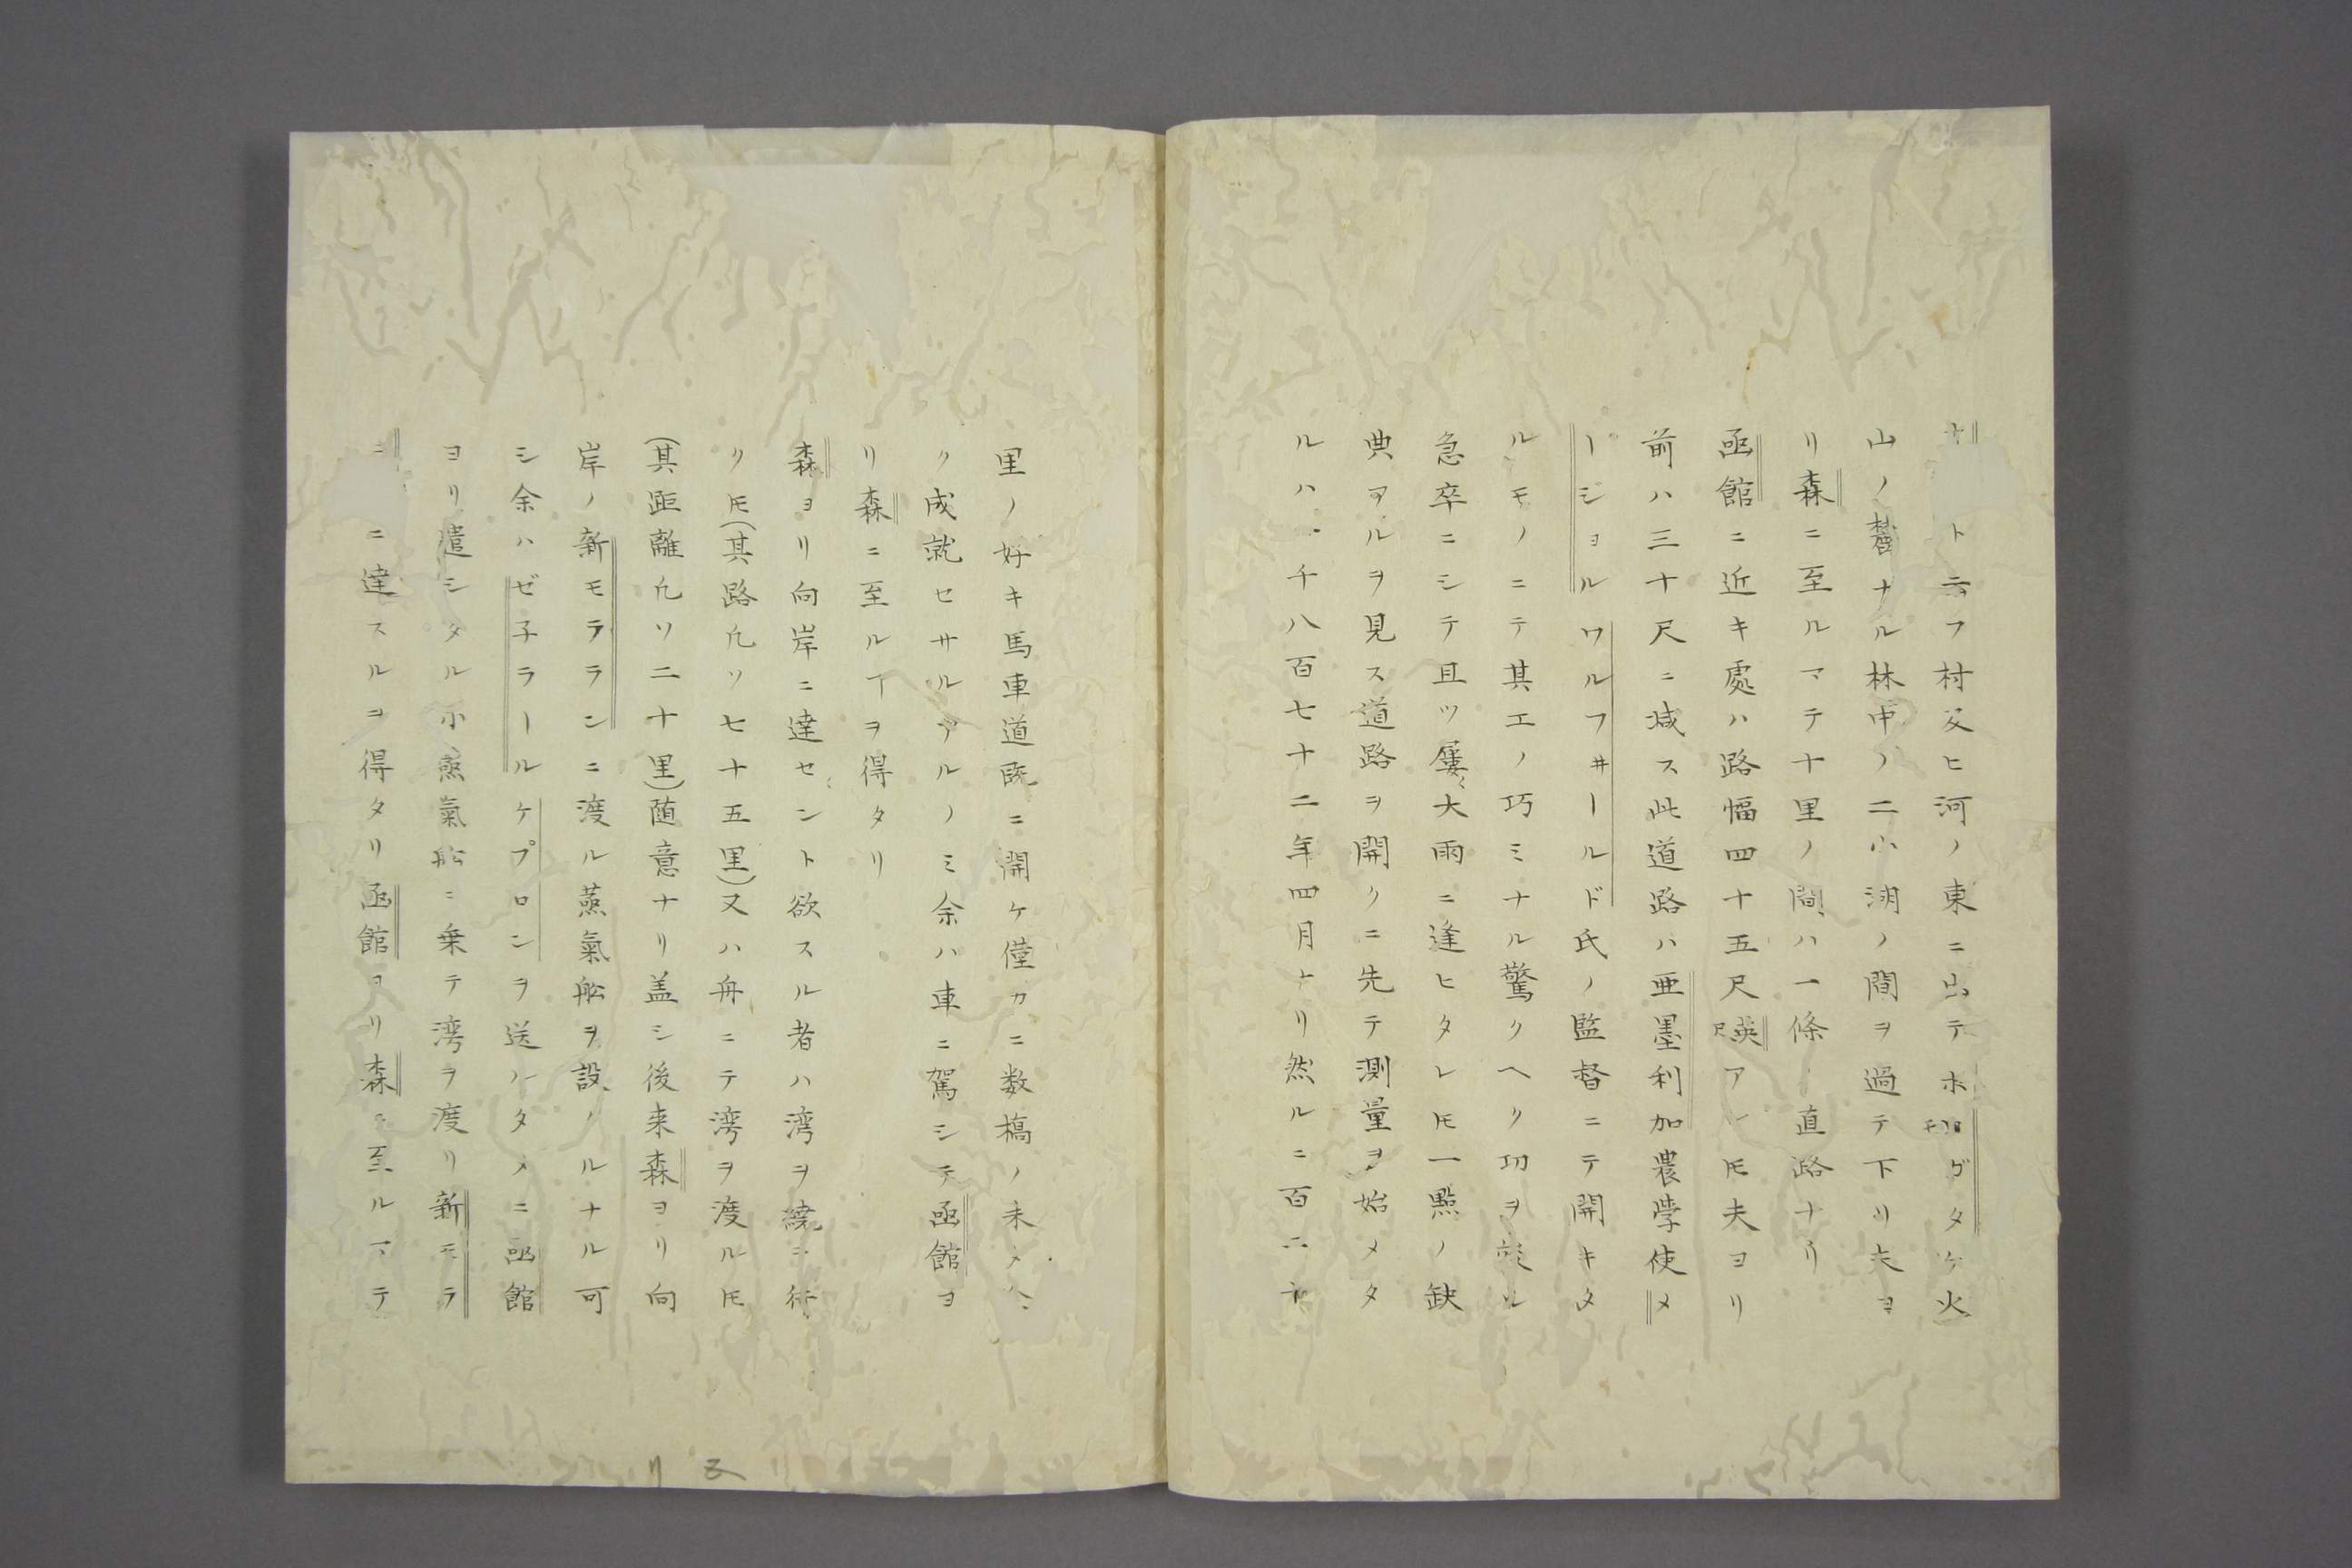 ト云フ村及ヒ河ノ東ニ出テホロモグタケ火
山ノ麓ナル林中ノ二小湖ノ間ヲ過テ下リ夫ヨ
リ森ニ至ルマテ十里ノ間ハ一條ノ直路ナリ
函館ニ近キ處ハ路幅四十五尺英尺アレ𪜈夫ヨリ
前ハ三十尺ニ減ス此道路ハ亜墨利加農學使メ
ーショルワルフヰールド氏ノ監督ニテ開キタ
ルモノニテ其工ノ巧ミナル驚クヘク功ヲ竣ル
急卒ニシテ且ツ屢〻大雨ニ逢ヒタレ𪜈一點ノ缺
典アルヲ見ス道路ヲ開クニ先テ測量ヲ始メタ
ルハ千八百七十二年四月ナリ然ルニ百二十
里ノ好キ馬車道既ニ開ケ僅カニ数橋ノ未タ
ク成就セサルアルノミ余ハ車ニ駕シテ函館ヨ
リ森ニ至ルヿヲ得タリ
森ヨリ向岸ニ達セント欲スル者ハ湾ヲ繞ニ行
ク𪜈(其路凢ソ七十五里)又ハ舟ニテ湾ヲ渡ル𪜈
(其距離凢ソ二十里)随意ナリ盖シ後来森ヨリ向
岸ノ新モラランニ渡ル蒸氣舩ヲ設ノルナル可
シ余ハゼ子ラールケプロンヲ送ルタメニ函館
ヨリ遣シタル小蒸氣舩ニ乗テ湾ヲ渡リ新モラ
ニ達スルヲ得タリ函館ヨリ森ニ至ルマテ